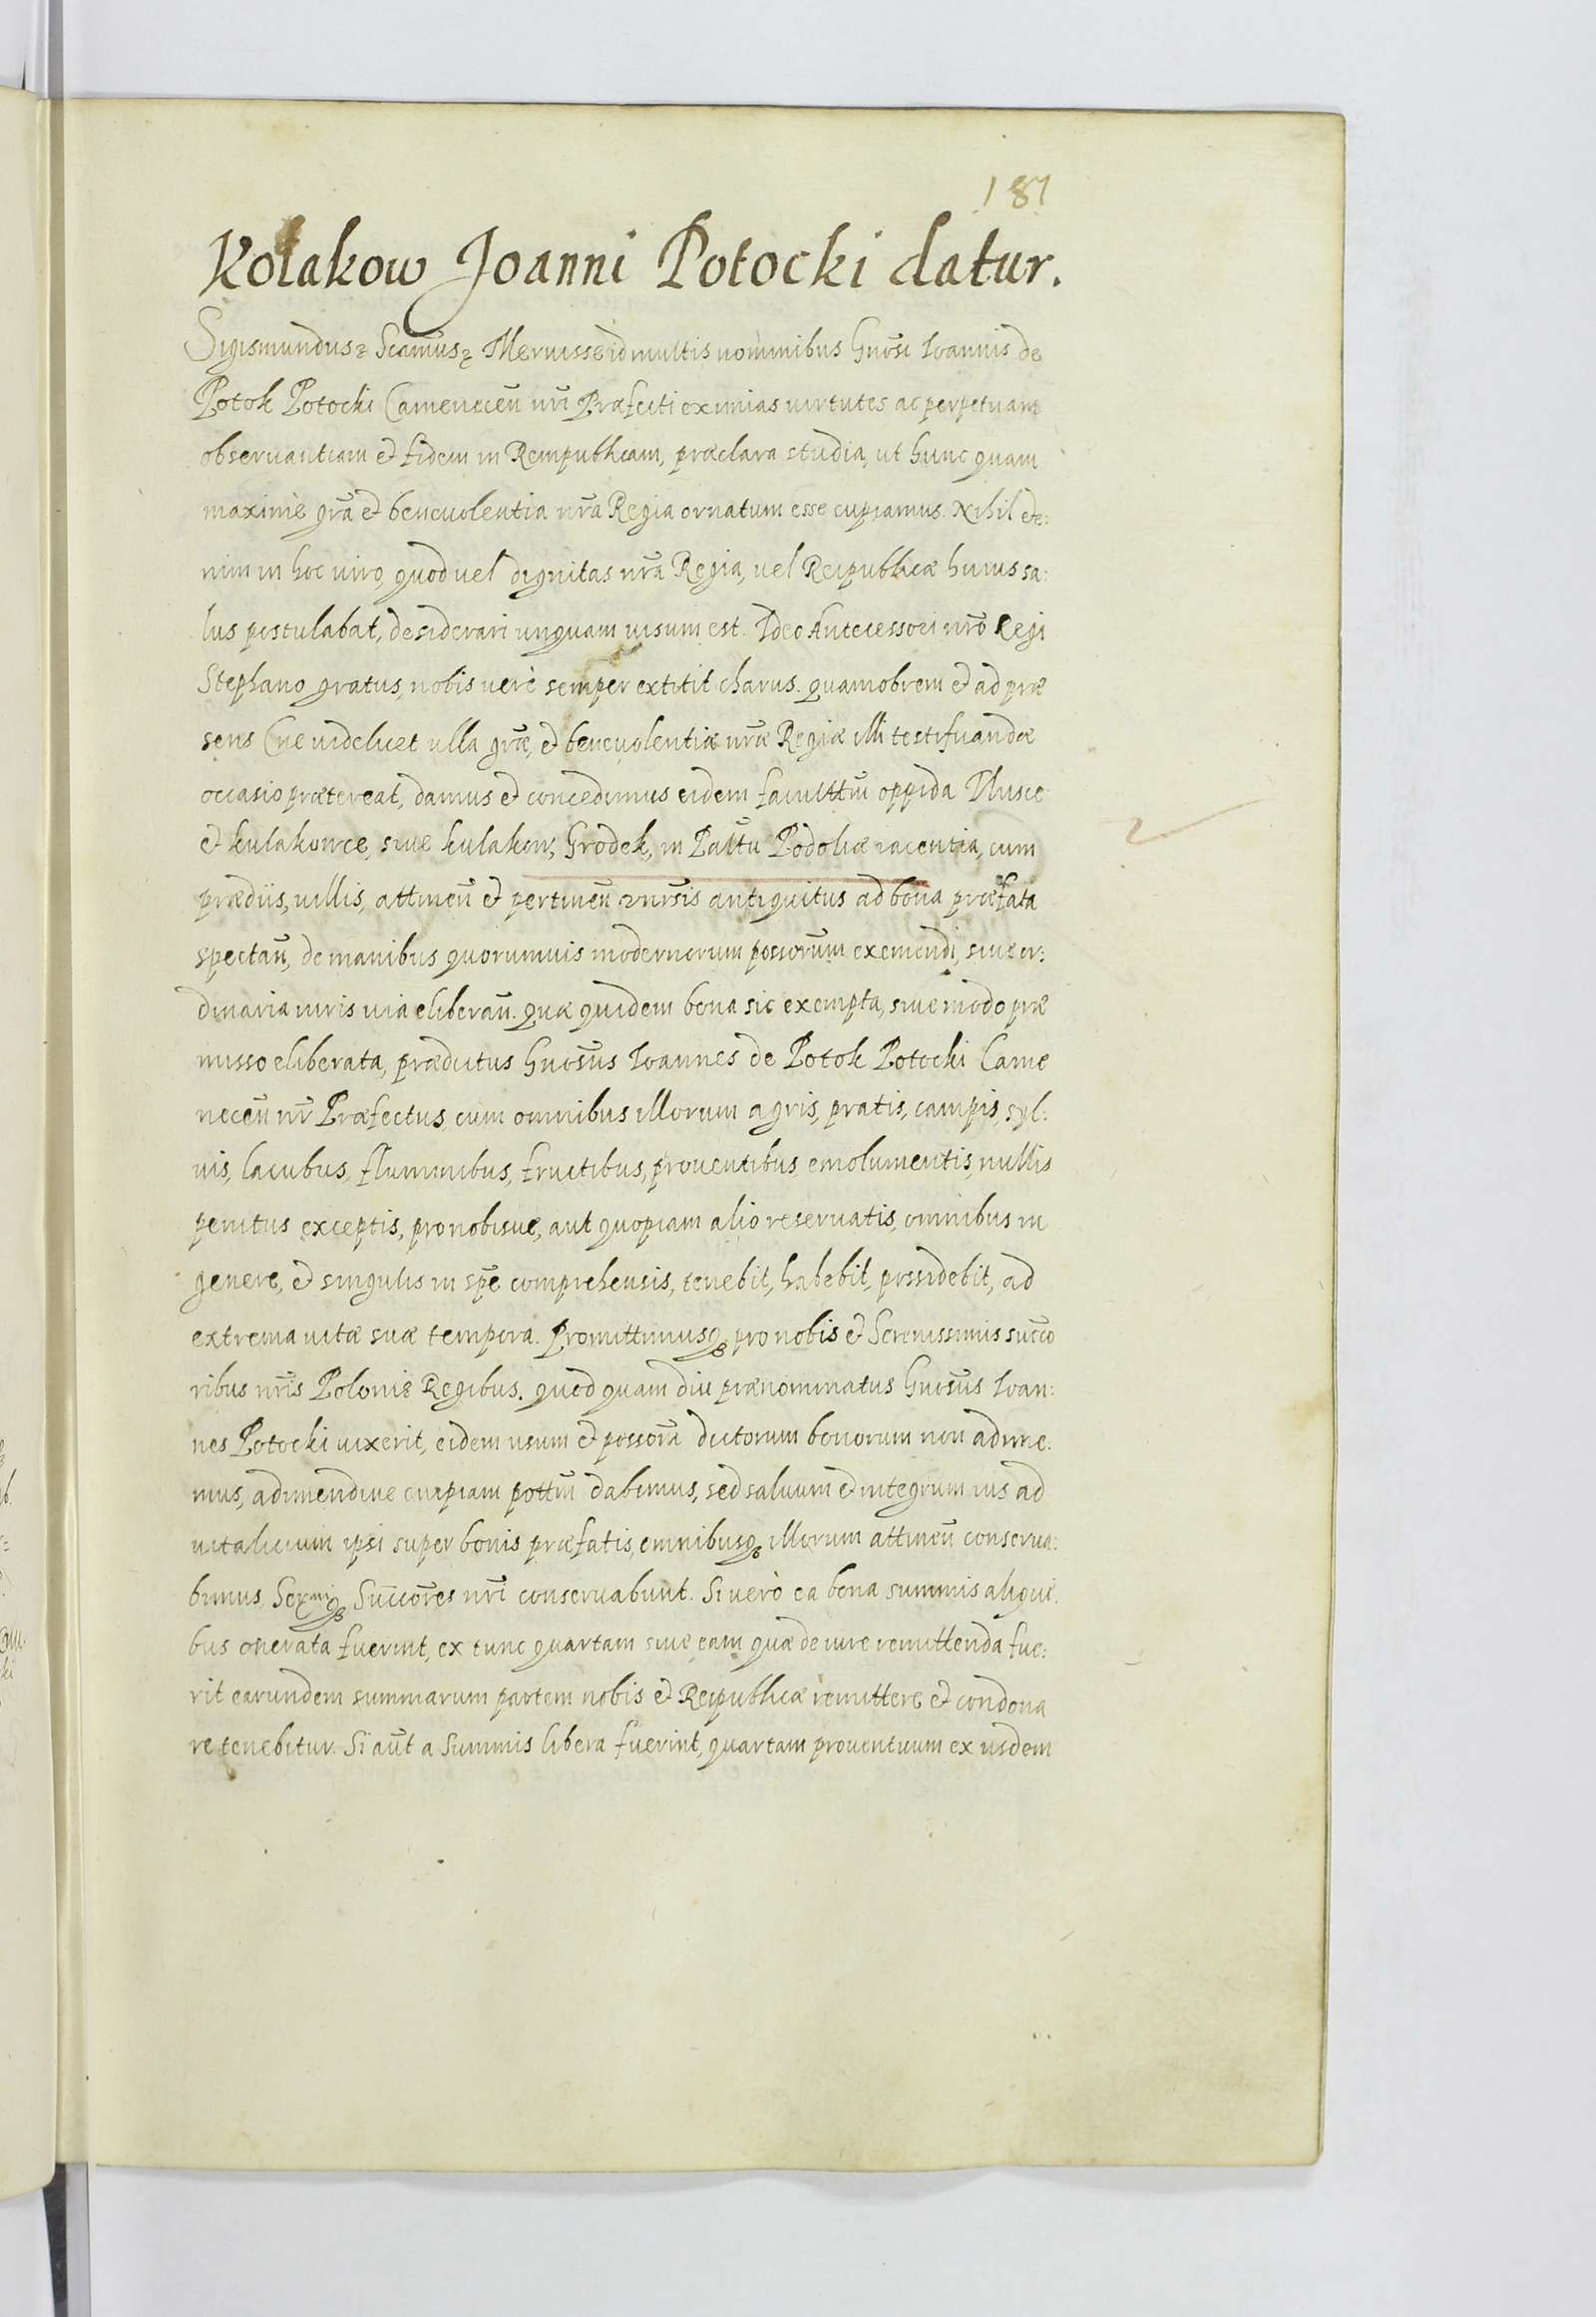 187
Kołakow Joanni Potocki datur.
Sigismundus Scamus Meruisse id multis nominibus Gnosi Ioannis de
Potok Potocki Camenecen̄ nrī Præfecti eximias virtutes ac perpetuam
obseruantiam et fidem in Rempublicam, præclara studia, ut hunc quam
maximè grā et beneuolentia nrā Regia ornatum esse cupiamus. Nihil et e:
nim in hoc uiro, quod uel dignitas nrā Regia, uel Reipublicæ huius sa:
lus postulabat, desiderari unquam uisum est. Ideo Antecessori nrō Regi
Stephano gratus, nobis uerè semper extitit charus. quamobrem et ad præ
sens (ne uidelicet ulla grāe, et beneuolentiæ nrāe Regiæ illi testificandæ
occasio prætereat, damus et concedimus eidem faculttm̄ oppida
et kulakowce, siue kulakow, Grodek, in Pałtu Podoliæ iacentia, cum
prædiis, uillis, attinen̄ et pertinen̄ antiquitus ad bona præfata
spectan̄, de manibus quorumuis modernorum possorum̄ eximendi, siue or:
dinaria iuris uia eliberan̄. quæ quidem bona sic exempta, siue modo præ
misso eliberata, prædictus Gnosūs Ioannes de Potok Potocki Came
necen̄ nr̄ Præfectus, cum omnibus illorum agris, pratis, campis, syl:
uis, lacubus, fluminibus, fructibus, prouentibus, emolumentis, nullis
penitus exceptis, pro nobisue, aut quopiam alio reseruatis, omnibus in
genere, et singulis in spē comprehensis, tenebit, habebit, possidebit, ad
extrema uitæ suæ tempora. Promittimusq3 pro nobis et Serenissimis succo
ribus nrīs Poloniæ Regibus. quod quam diu prænominatus Gnosūs Ioan:
nes Potocki uixerit, eidem usum et possorā dictorum bonorum non adime:
mus, adimendiue cuipiam pottm̄ dabimus, sed saluum et integrum ius ad
uitalicium ipsi super bonis præfatis, omnibusq3 illorum attinen̄ conserua:
bimus, Sermiq3 Successōres nrī conseruabunt. Si uerò ea bona summis aliqui.
bus onerata fuerint, ex tunc quartam siue eam quæ de iure remittenda fue:
rit earundem summarum partem nobis et Reipublicæ remittere et condona
re tenebitur. Si aūt a summis libera fuerint, quartam prouentuum ex iisdem